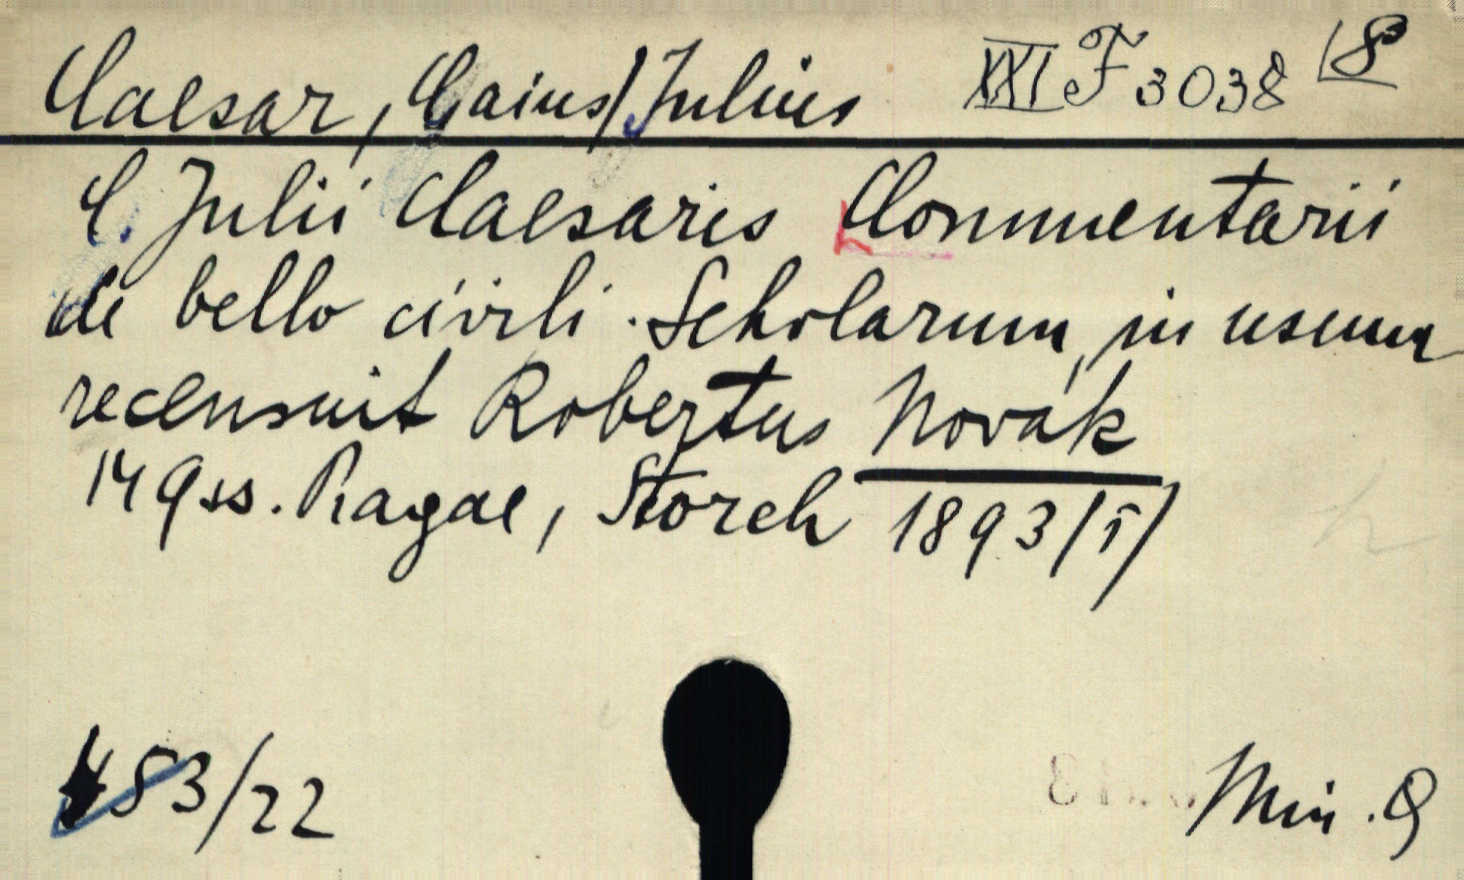 Caesar, Gaius/Julius XXI F 3038 8°
C. Julii Caesaris Commentarii
de bello civili. Scholarum in usum
recensuit Robertus Novák
149 ss. Pragae, Storch 1893/I/
483/22 Min. Q